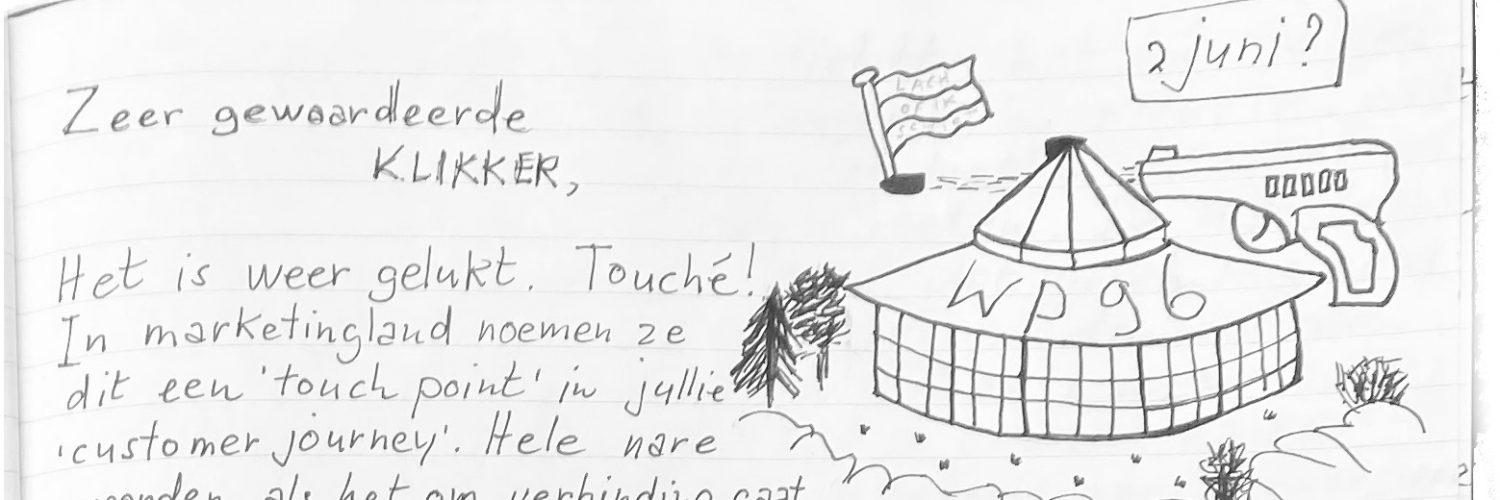 2 juni?
LACH
OF IK
SCHIET
Zeer gewaardeerde
KLIKKER,
Het is weer gelukt. Touché!
wpgb
In marketingland noemen ze
dit een 'touch point' in jullie
'customer journey'. Hele nare
als het om verbinding gaat